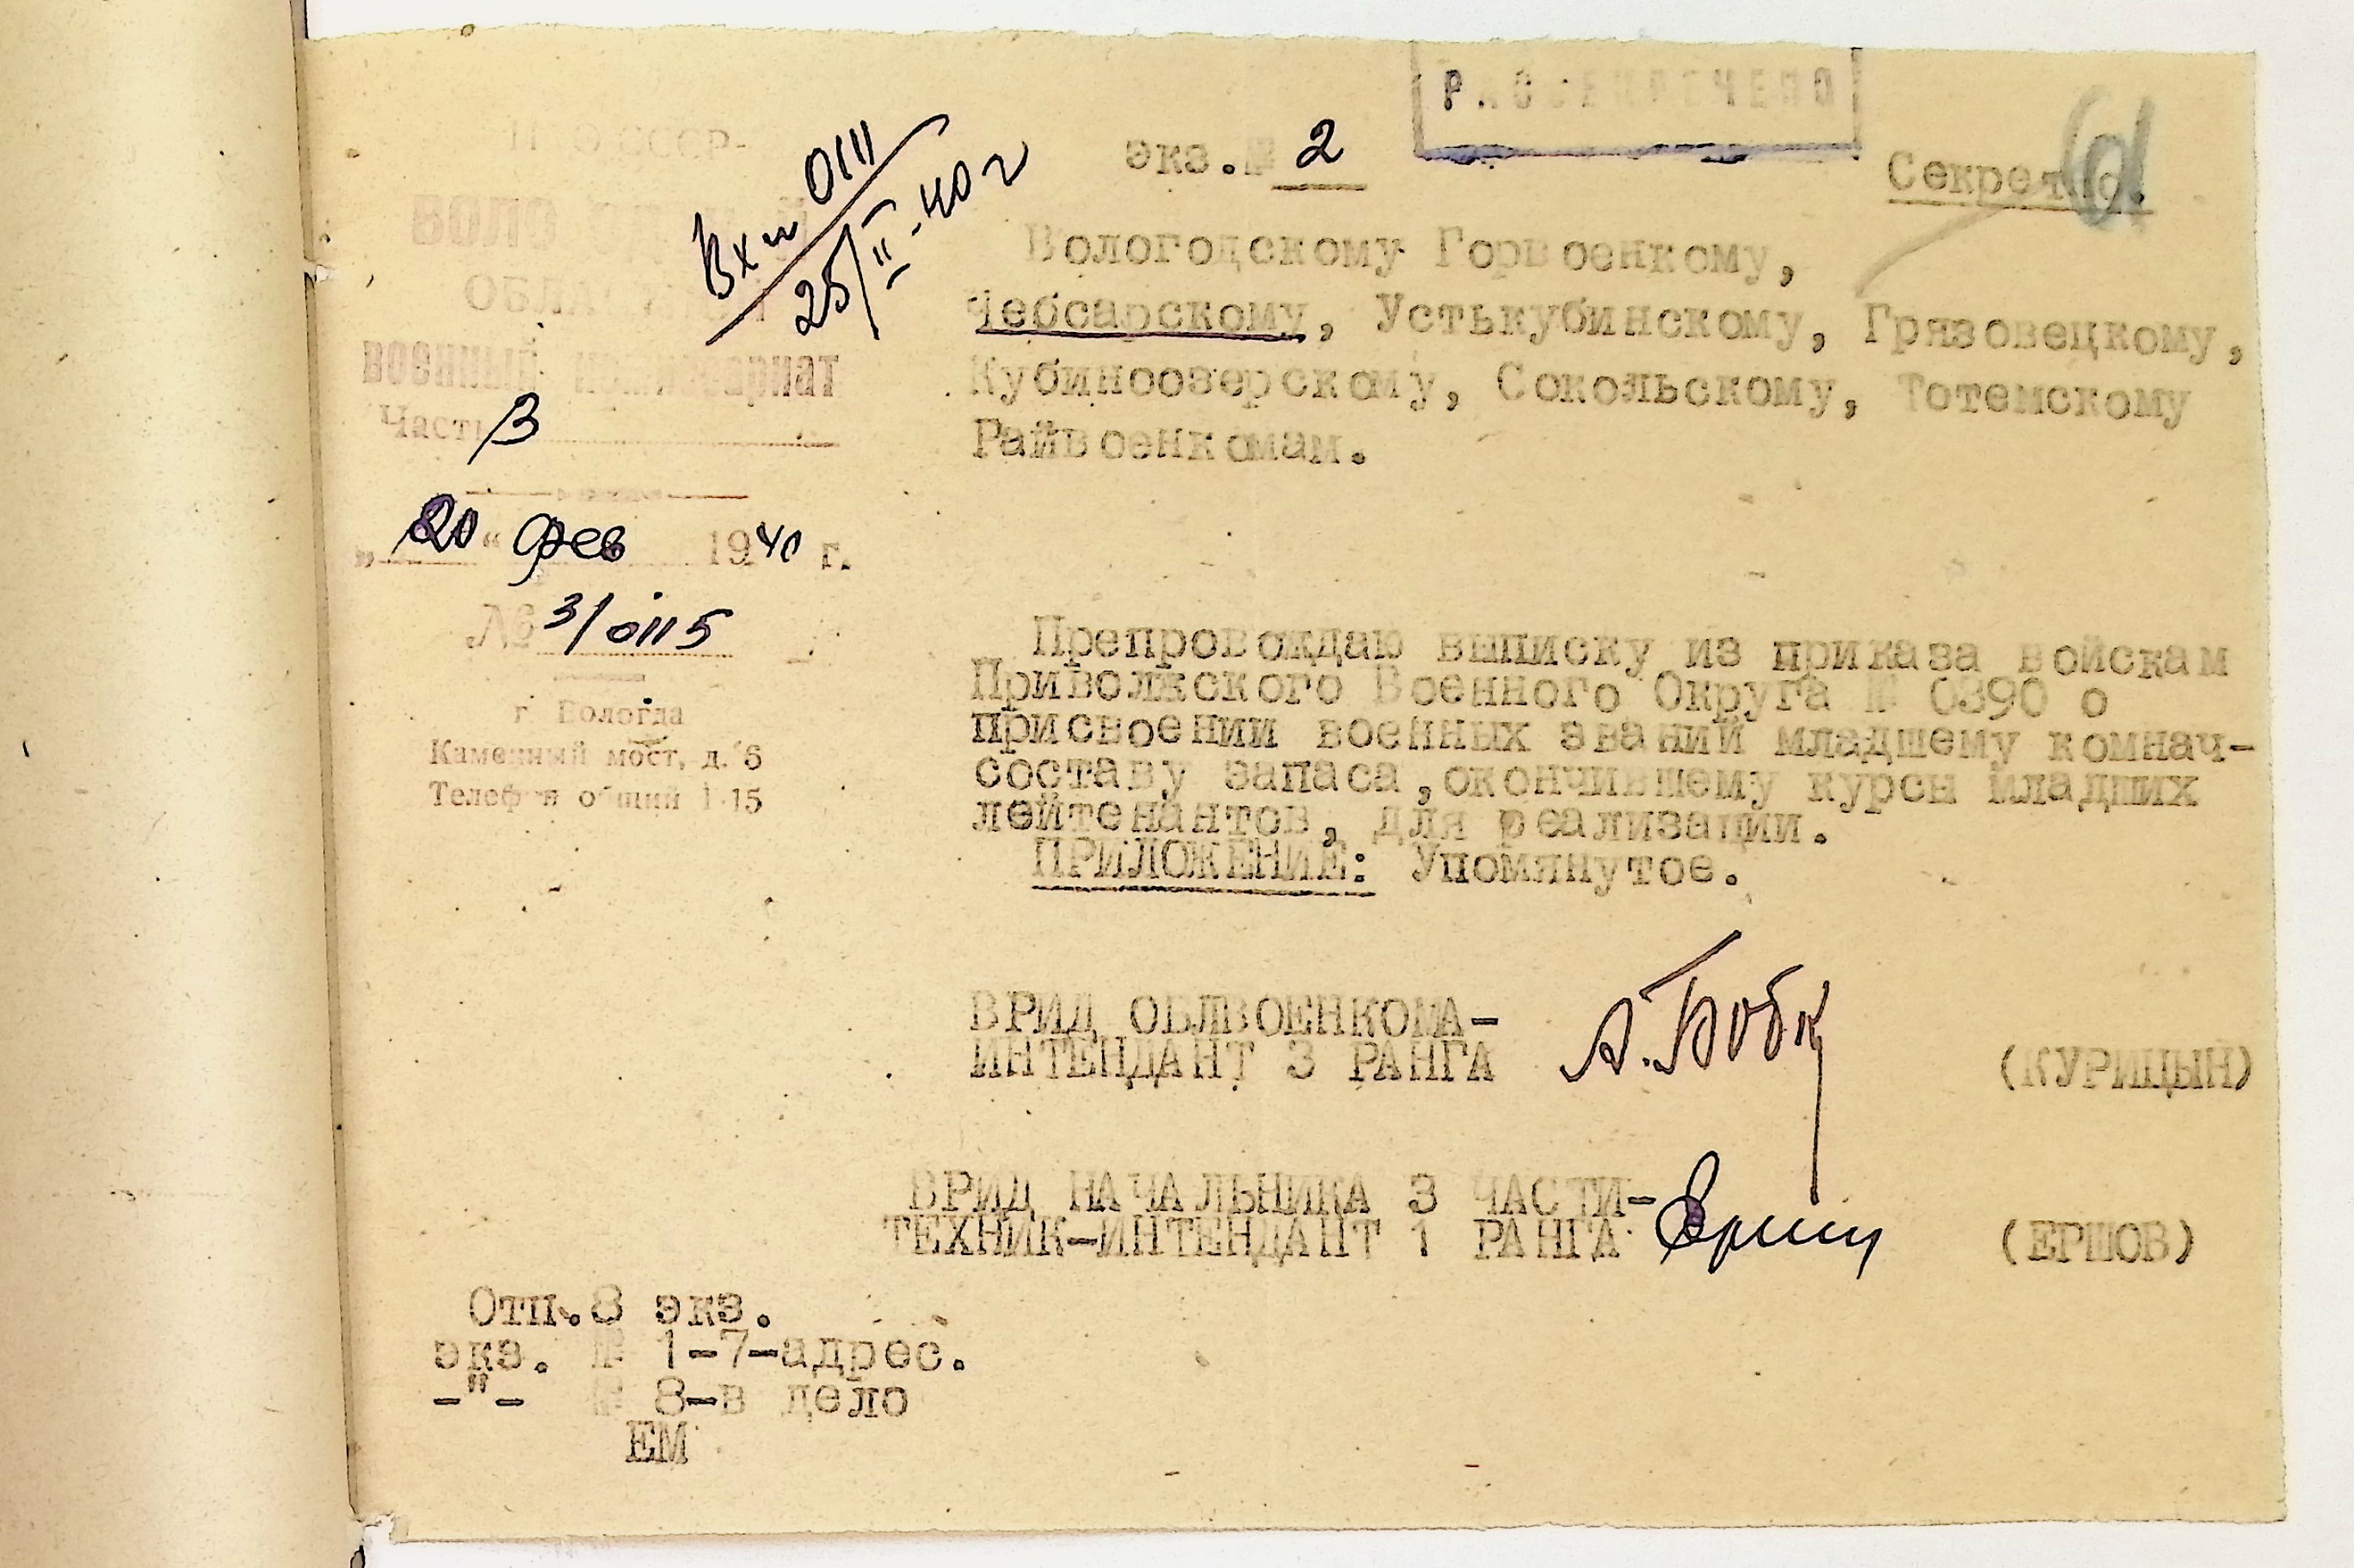 РАССЕКРЕЧЕНО
экз.№ 2
Секретно.
Вх № 0111
25/II-40 г
НКО СССР
ВОЛОГОДСКИЙ
ОБЛАСТНОЙ
военный комиссариат
Часть 3
„20“ фев 1940 г.
№ 3/0115
г. Вологда
Каменный мост, д. 6
Телефон общий 1-15
Вологодскому Горвоенкому,
Чебсарскому, Устькубинскому, Грязовецкому,
Кубиноозерскому, Сокольскому, Тотемскому
Райвоенкомам.
Препровождаю выписку из приказа войскам
Приволжского Военного Округа № 0390 о
присвоении военных званий младшему комнач-
составу запаса,окончившему курсы младших
лейтенантов, для реализации.
ПРИЛОЖЕНИЕ: Упомянутое.
ВРИД ОБЛВОЕНКОМА-
ИНТЕНДАНТ 3 РАНГА
(КУРИЦЫН)
ВРИД НАЧАЛЬНИКА 3 ЧАСТИ-
ТЕХНИК-ИНТЕНДАНТ 1 РАНГА
(ЕРШОВ)
Отп.8 экз.
экз. № 1-7-адрес.
-"- № 8-в дело
ЕМ